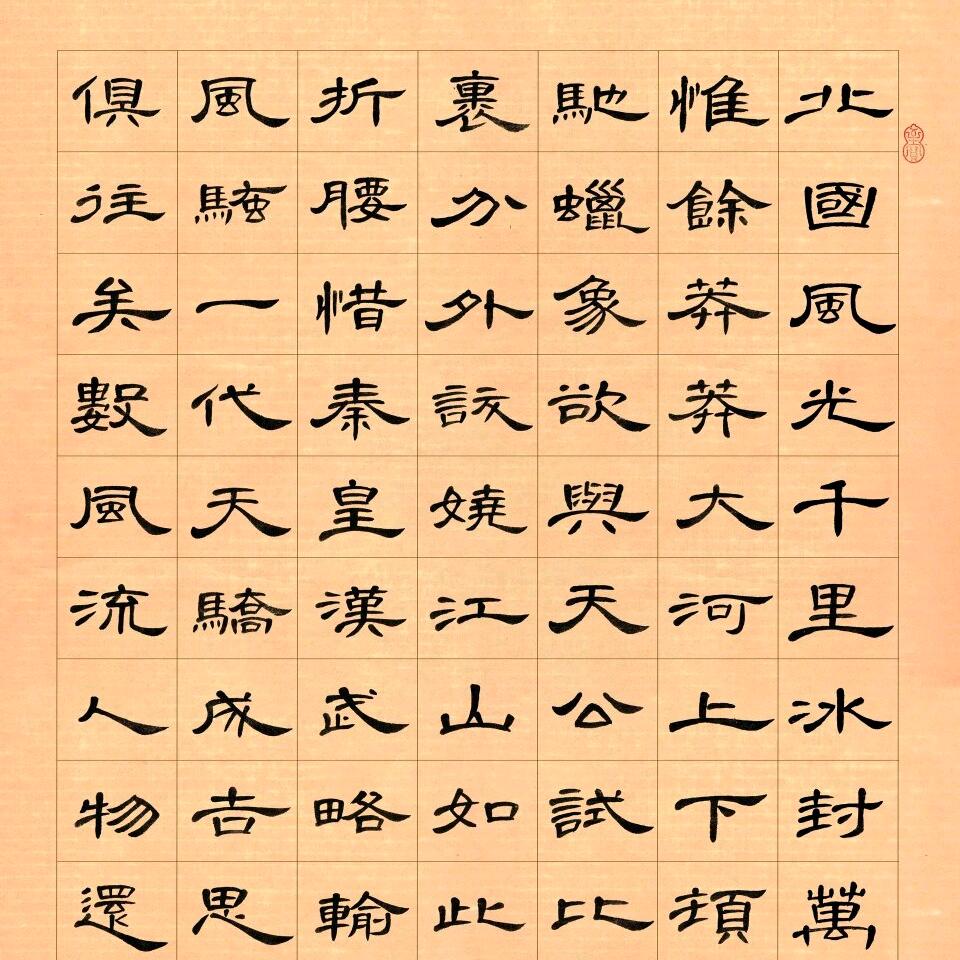 北國風光千里冰封萬
惟餘莽莽大河上下頓
馳蠟象欲與天公試比
裹分外嬈江山如此
折腰惜秦皇漢武略輸
風騷一代天驕成吉思
俱往矣數風流人物還